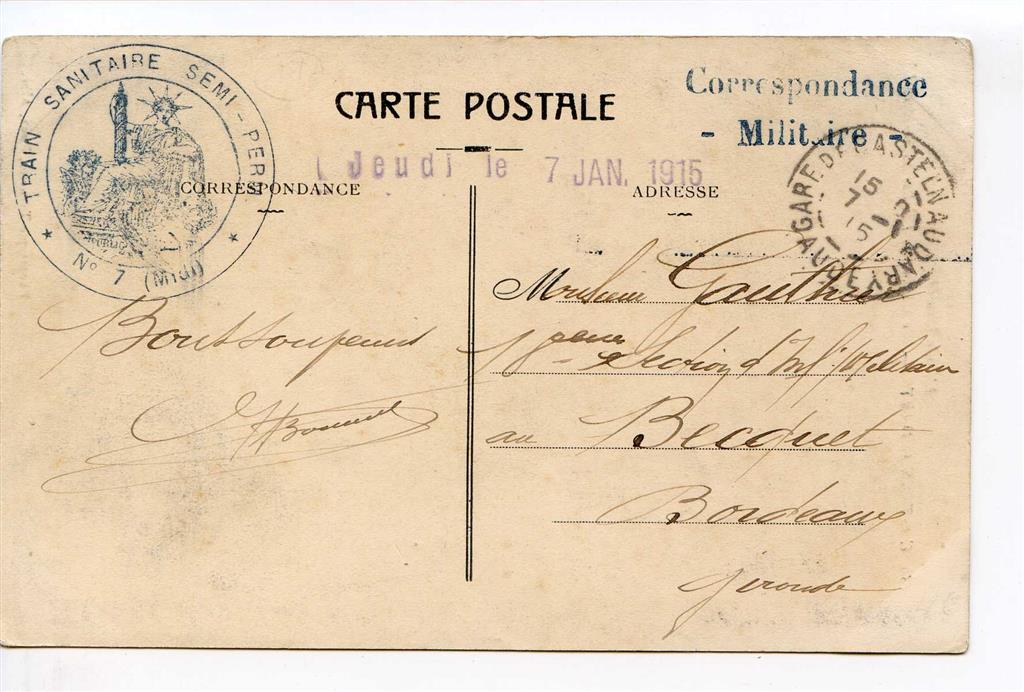 TRAIN SANITAIRE SEMI-PER
N° 7 (Midi)
CARTE POSTALE
Correspondance
- Militaire -
Jeudi le 7 JAN. 1915
CORRESPONDANCE
ADRESSE
GARE DE CASTELNAUDARY
AUDE
15
7 1
15
Monsieur Gauthier
18eme Section d'Inf. Militaire
au Becquet
Bordeaux
Gironde
Bons Souvenirs